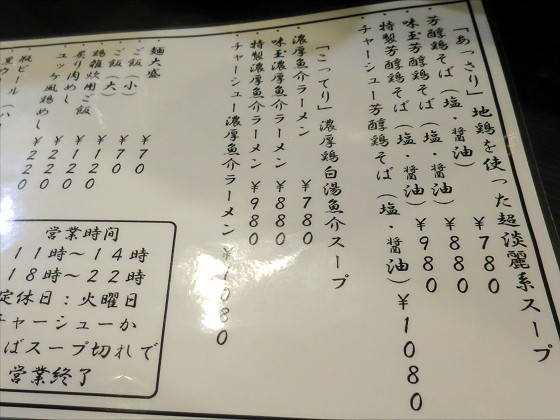 「あっさり」地鶏を使った超淡麗系スープ
芳醇鶏そば（塩・醤油）￥780
味玉芳醇鶏そば（塩・醤油）￥880
特製芳醇鶏そば（塩・醤油）￥980
チャーシュー芳醇鶏そば（塩・醤油）￥1080
「こってり」濃厚鶏白湯魚介スープ
濃厚魚介ラーメン￥780
味玉濃厚魚介ラーメン￥880
特製濃厚魚介ラーメン￥980
チャーシュー濃厚魚介ラーメン￥1080
麺大盛￥70
ご飯（小）￥70
ご飯（大）￥120
鶏雑炊用ご飯￥120
炙り肉めし￥220
ユッケ風鶏めし￥220
瓶ビール
黒ウー
営業時間
11時〜14時
18時〜22時
定休日：火曜日
チャーシューか
ばスープ切れで
営業終了